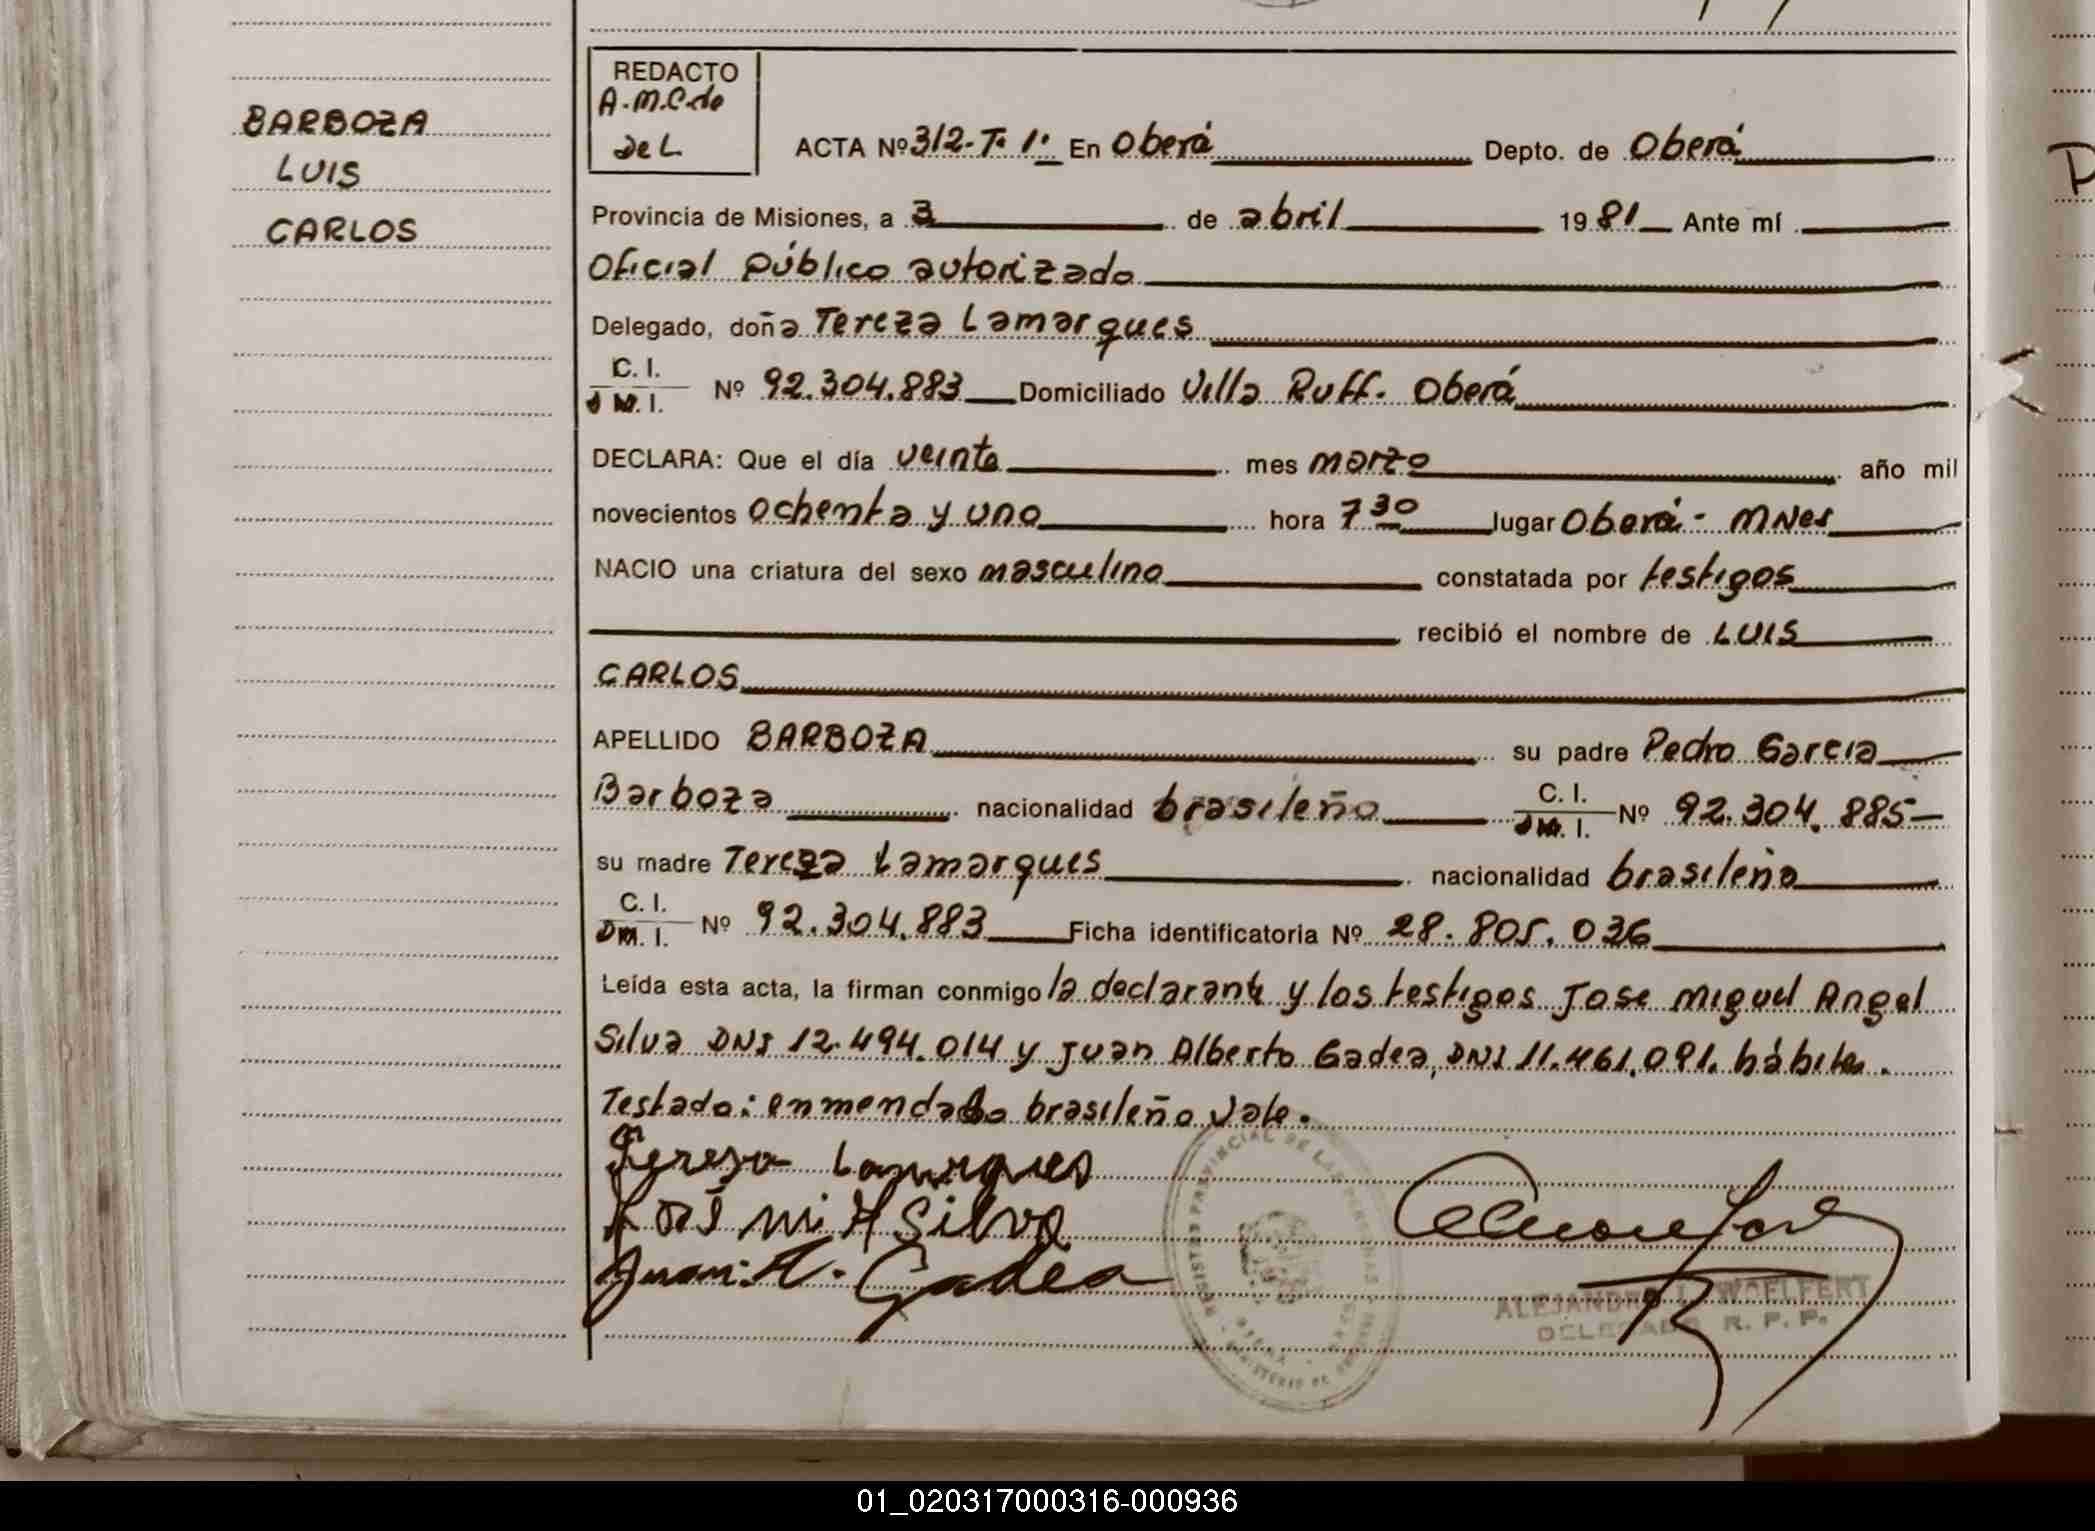 BARBOZA
LUIS
CARLOS
REDACTO
A.M.C.de
de L
ACTA Nº 312-Tº 1º En Oberá Depto. de Oberá
Provincia de Misiones, a 3 de abril 1981 Ante mí
Oficial Público autorizado
Delegado, doña Tereza Lamarques
C. I.
D.N.I. Nº 92.304.883 Domiciliado Villa Ruff. Oberá
DECLARA: Que el día veinte mes marzo año mil
novecientos ochenta y uno hora 7 30 lugar Oberá - MNes
NACIO una criatura del sexo masculino constatada por testigos
recibió el nombre de LUIS
CARLOS
APELLIDO BARBOZA su padre Pedro Garcia
Barboza nacionalidad brasileño C. I.
D.N.I. Nº 92.304.885-
su madre Tereza Lamarques nacionalidad brasileña
C. I.
D.N.I. Nº 92.304.883 Ficha identificatoria Nº 28.805.036
Leída esta acta, la firman conmigo la declarante y los testigos Jose Miguel Angel
Silva DNI 12.494.014 y Juan Alberto Gadea, DNI 11.461.091. hábiles.
Testado: enmendado brasileño Vale.
Tereza Lamarques
José Mi A Silva
Juan A. Gadea
REGISTRO PROVINCIAL DE LAS PERSONAS
ALEJANDRO L. WOELFERT
DELEGADO R. P. P.
01_020317000316-000936